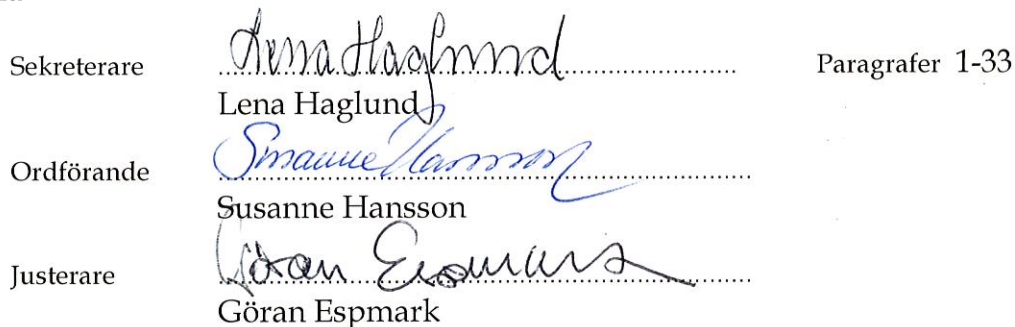 Sekreterare Lena Haglund Paragrafer 1-33
Lena Haglund
Ordförande Susanne Hansson
Susanne Hansson
Justerare Göran Espmark
Göran Espmark